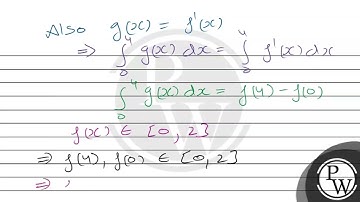 Also g(x) = f'(x)
⇒ ∫₀⁴ g(x) dx = ∫₀⁴ f'(x) dx
∫₀⁴ g(x) dx = f(4) - f(0)
f(x) ∈ [0, 2]
⇒ f(4), f(0) ∈ [0, 2]
⇒
P
W